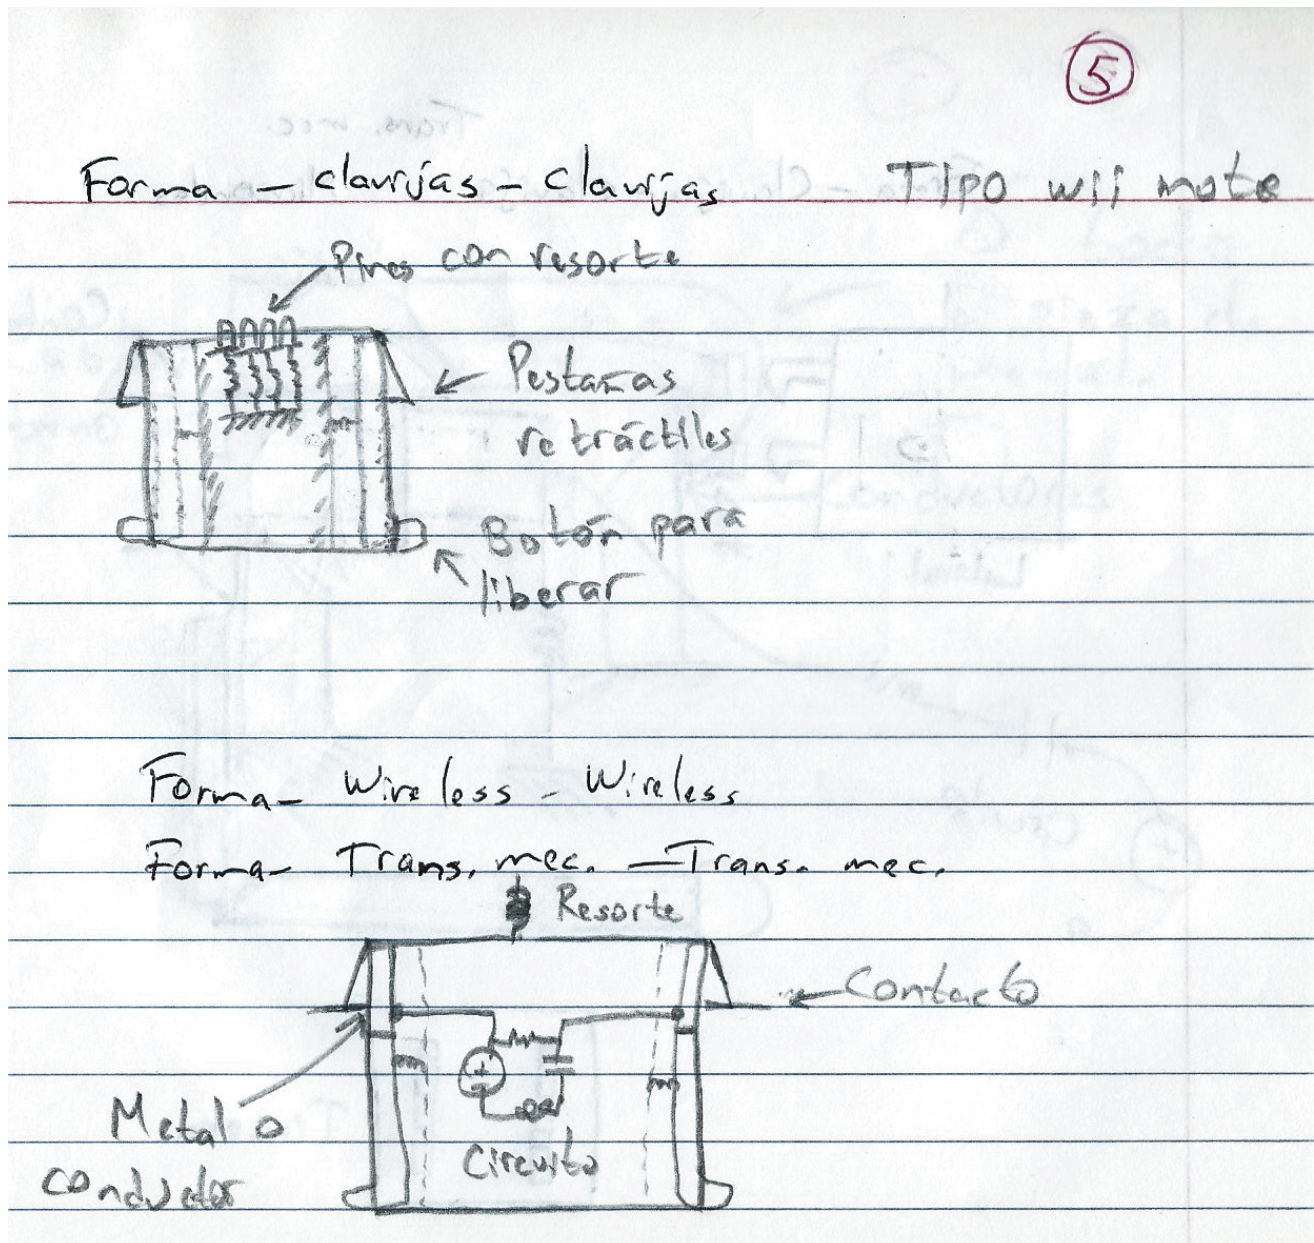 5
Forma - clavijas - Clavijas Tipo wii mote
Pines con resorte
Pestañas
retráctiles
Botón para
liberar
Forma - Wireless - Wireless
Forma - Trans. mec. - Trans. mec.
Resorte
Contacto
Metal o
conductor
Circuito